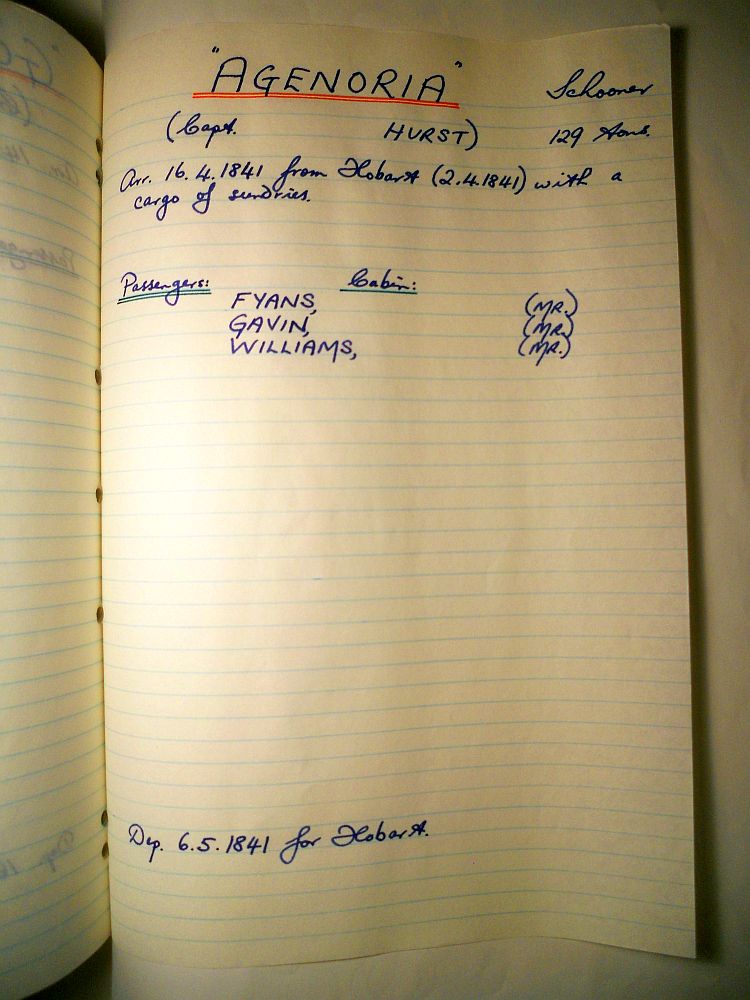 "AGENORIA" Schooner
(Capt. HURST) 129 tons.
Arr. 16.4.1841 from Hobart (2.4.1841) with a
cargo of sundries.
Passengers: Cabin:
FYANS, (MR.)
GAVIN, (MR.)
WILLIAMS, (MR.)
Dep. 6.5.1841 for Hobart.